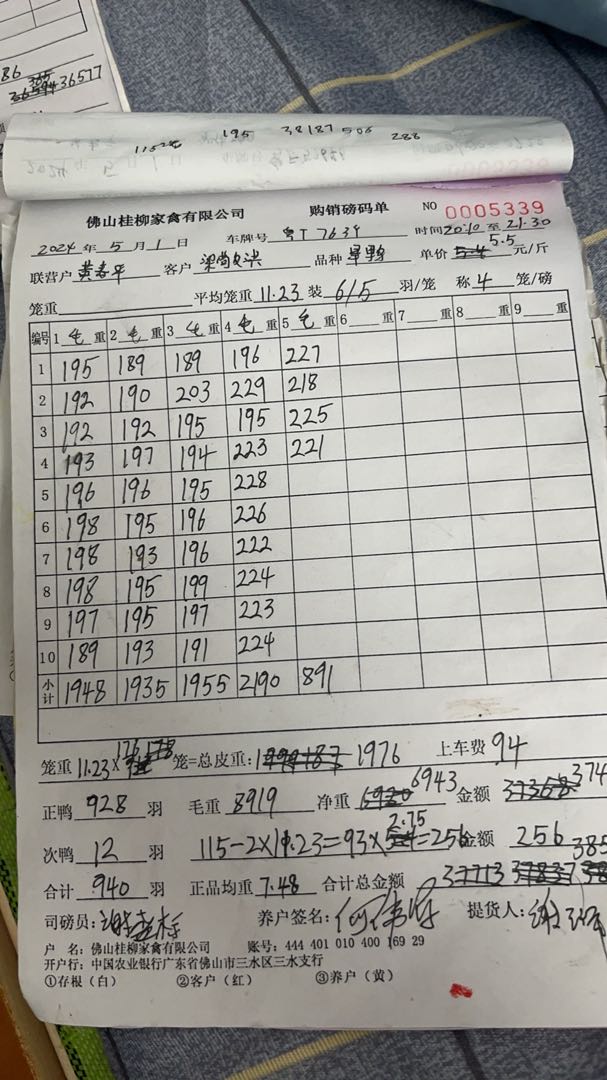 36577
195 38187 506 288
佛山桂柳家禽有限公司 购销磅码单 NO 0005339
2024 年 5 月 1 日 车牌号 粤T 7639 时间 20:10 至 21:30
联营户 黄春平 客户 品种 单价 5.5 元/斤
笼重 平均笼重 11.23 装 6/5 羽/笼 称 4 笼/磅
编号 1 毛 重 2 毛 重 3 毛 重 4 毛 重 5 毛 重 6 重 7 重 8 重 9 重
1 195 189 189 196 227
2 192 190 203 229 218
3 192 192 195 195 225
4 193 197 194 223 221
5 196 196 195 228
6 198 195 196 226
7 198 193 196 222
8 198 195 199 224
9 197 195 197 223
10 189 193 191 224
小计 1948 1935 1955 2190 891
笼重 11.23 × 笼=总皮重: 1976 上车费 94
正鸭 928 羽 毛重 8919 净重 6943 金额 374
次鸭 12 羽 115-2×11.23=93× 2.75 =256 金额 256 385
合计 940 羽 正品均重 7.48 合计总金额
司磅员: 养户签名: 提货人:
户 名: 佛山桂柳家禽有限公司 账号: 444 401 010 400 169 29
开户行: 中国农业银行广东省佛山市三水区三水支行
①存根(白) ②客户(红) ③养户(黄)